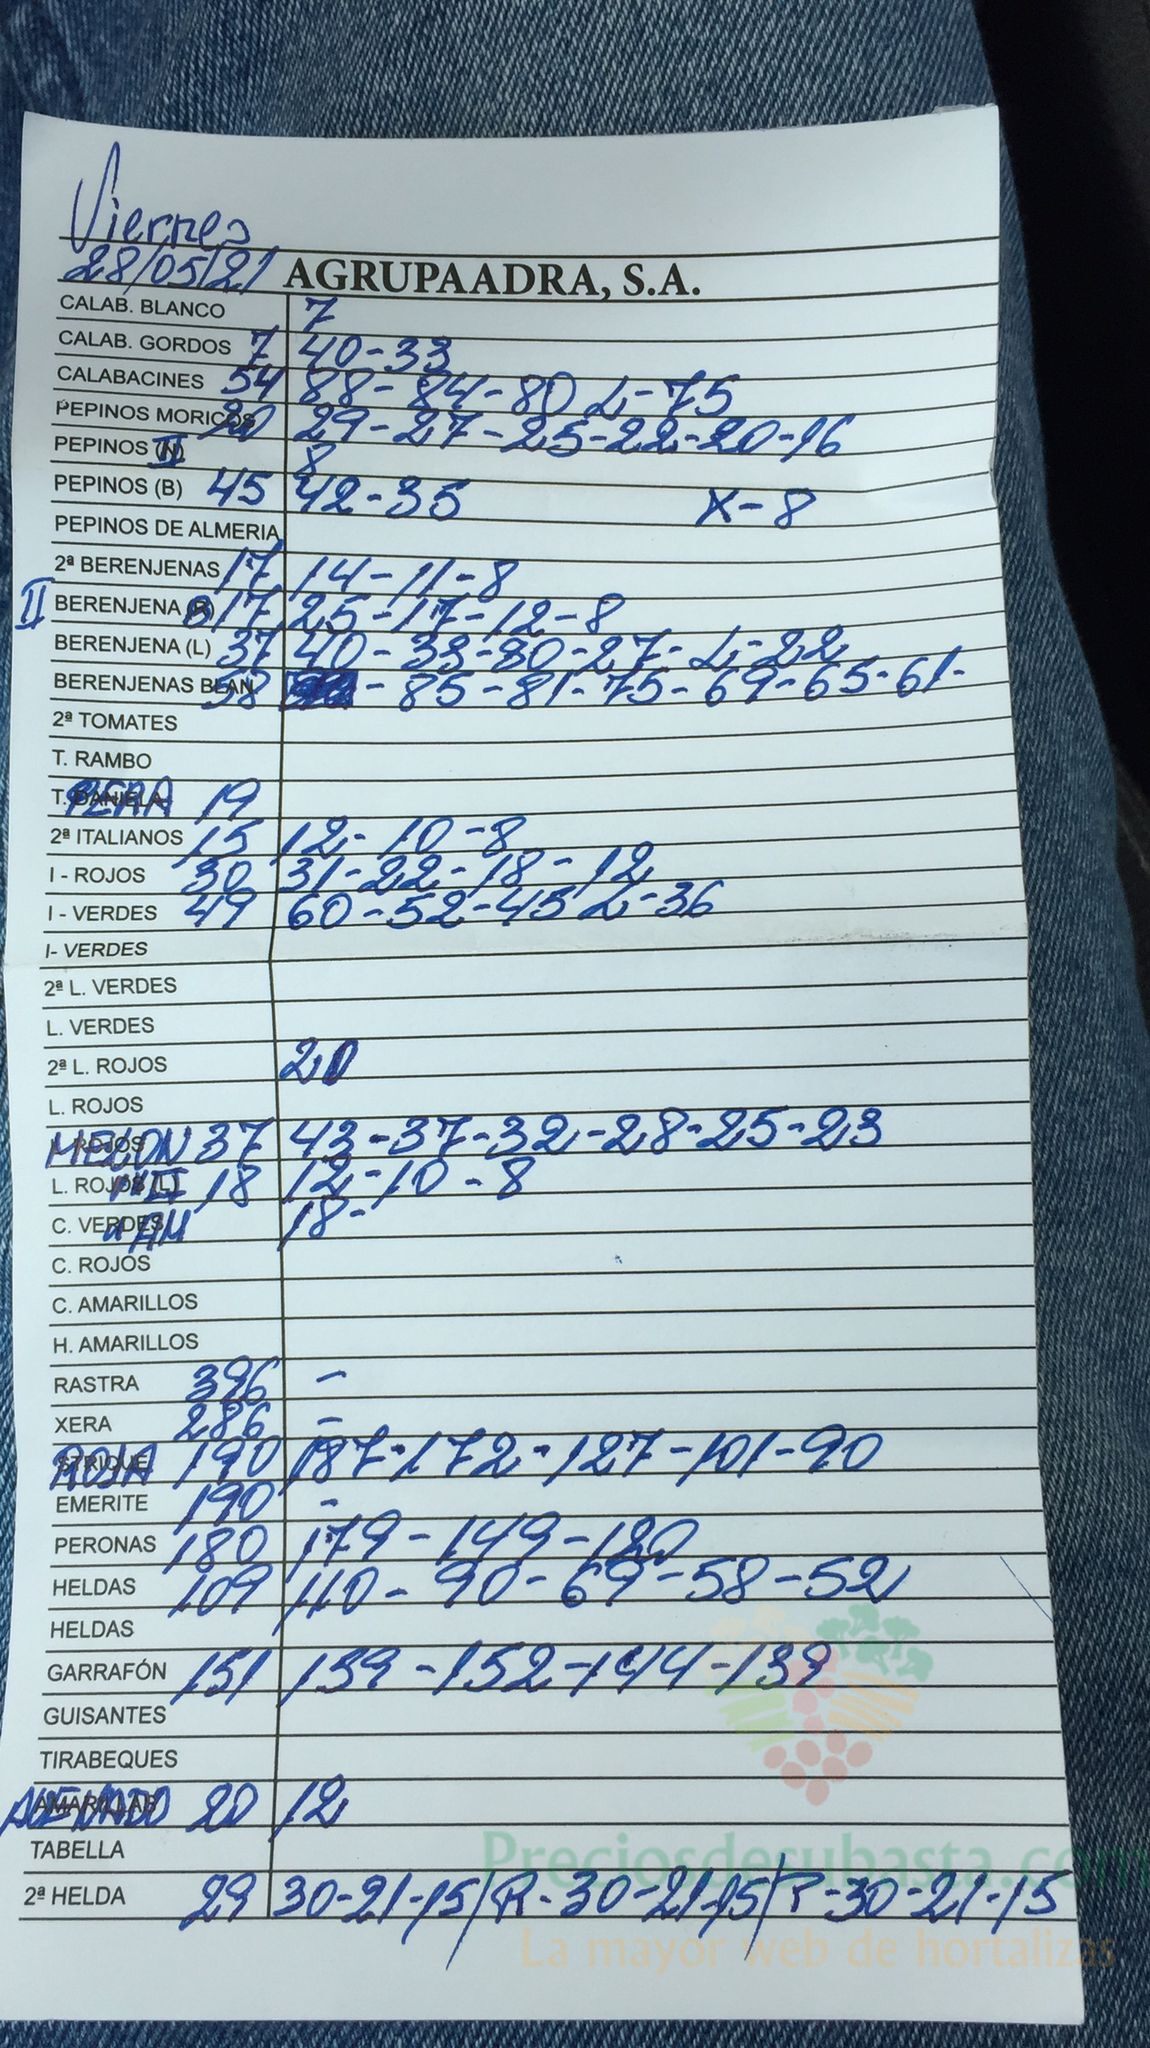 Viernes
28/05/21 AGRUPAADRA, S.A.
CALAB. BLANCO 7
CALAB. GORDOS 7 40-33
CALABACINES 54 88-84-80 L-75
PEPINOS MORICOS 20 29-27-25-22-20-16
PEPINOS II 8
PEPINOS (B) 45 42-35 X-8
PEPINOS DE ALMERIA
2ª BERENJENAS 17 14-11-8
II BERENJENA 17 25-17-12-8
BERENJENA (L) 37 40-33-30-27-L-22
BERENJENAS BLAN 58 - 85-81-75-69-65-61-
2ª TOMATES
T. RAMBO
PERA 19
2ª ITALIANOS 15 12-10-8
I - ROJOS 30 31-22-18-12
I - VERDES 49 60-52-45 L-36
I- VERDES
2ª L. VERDES
L. VERDES
2ª L. ROJOS 20
L. ROJOS
MELON 37 43-37-32-28-25-23
L. ROJOS (L) II 18 12-10-8
C. VERDES AM 18-
C. ROJOS
C. AMARILLOS
H. AMARILLOS
RASTRA 396 -
XERA 286 -
ROJA 190 187-172-127-101-90
EMERITE 190 -
PERONAS 180 179-149-120
HELDAS 109 110-90-69-58-52
HELDAS
GARRAFÓN 151 159-152-144-139
GUISANTES
TIRABEQUES
20 12
TABELLA
2ª HELDA 29 30-21-15/R-30-21-15/P-30-21-15
Preciosdesubasta.com
La mayor web de hortalizas